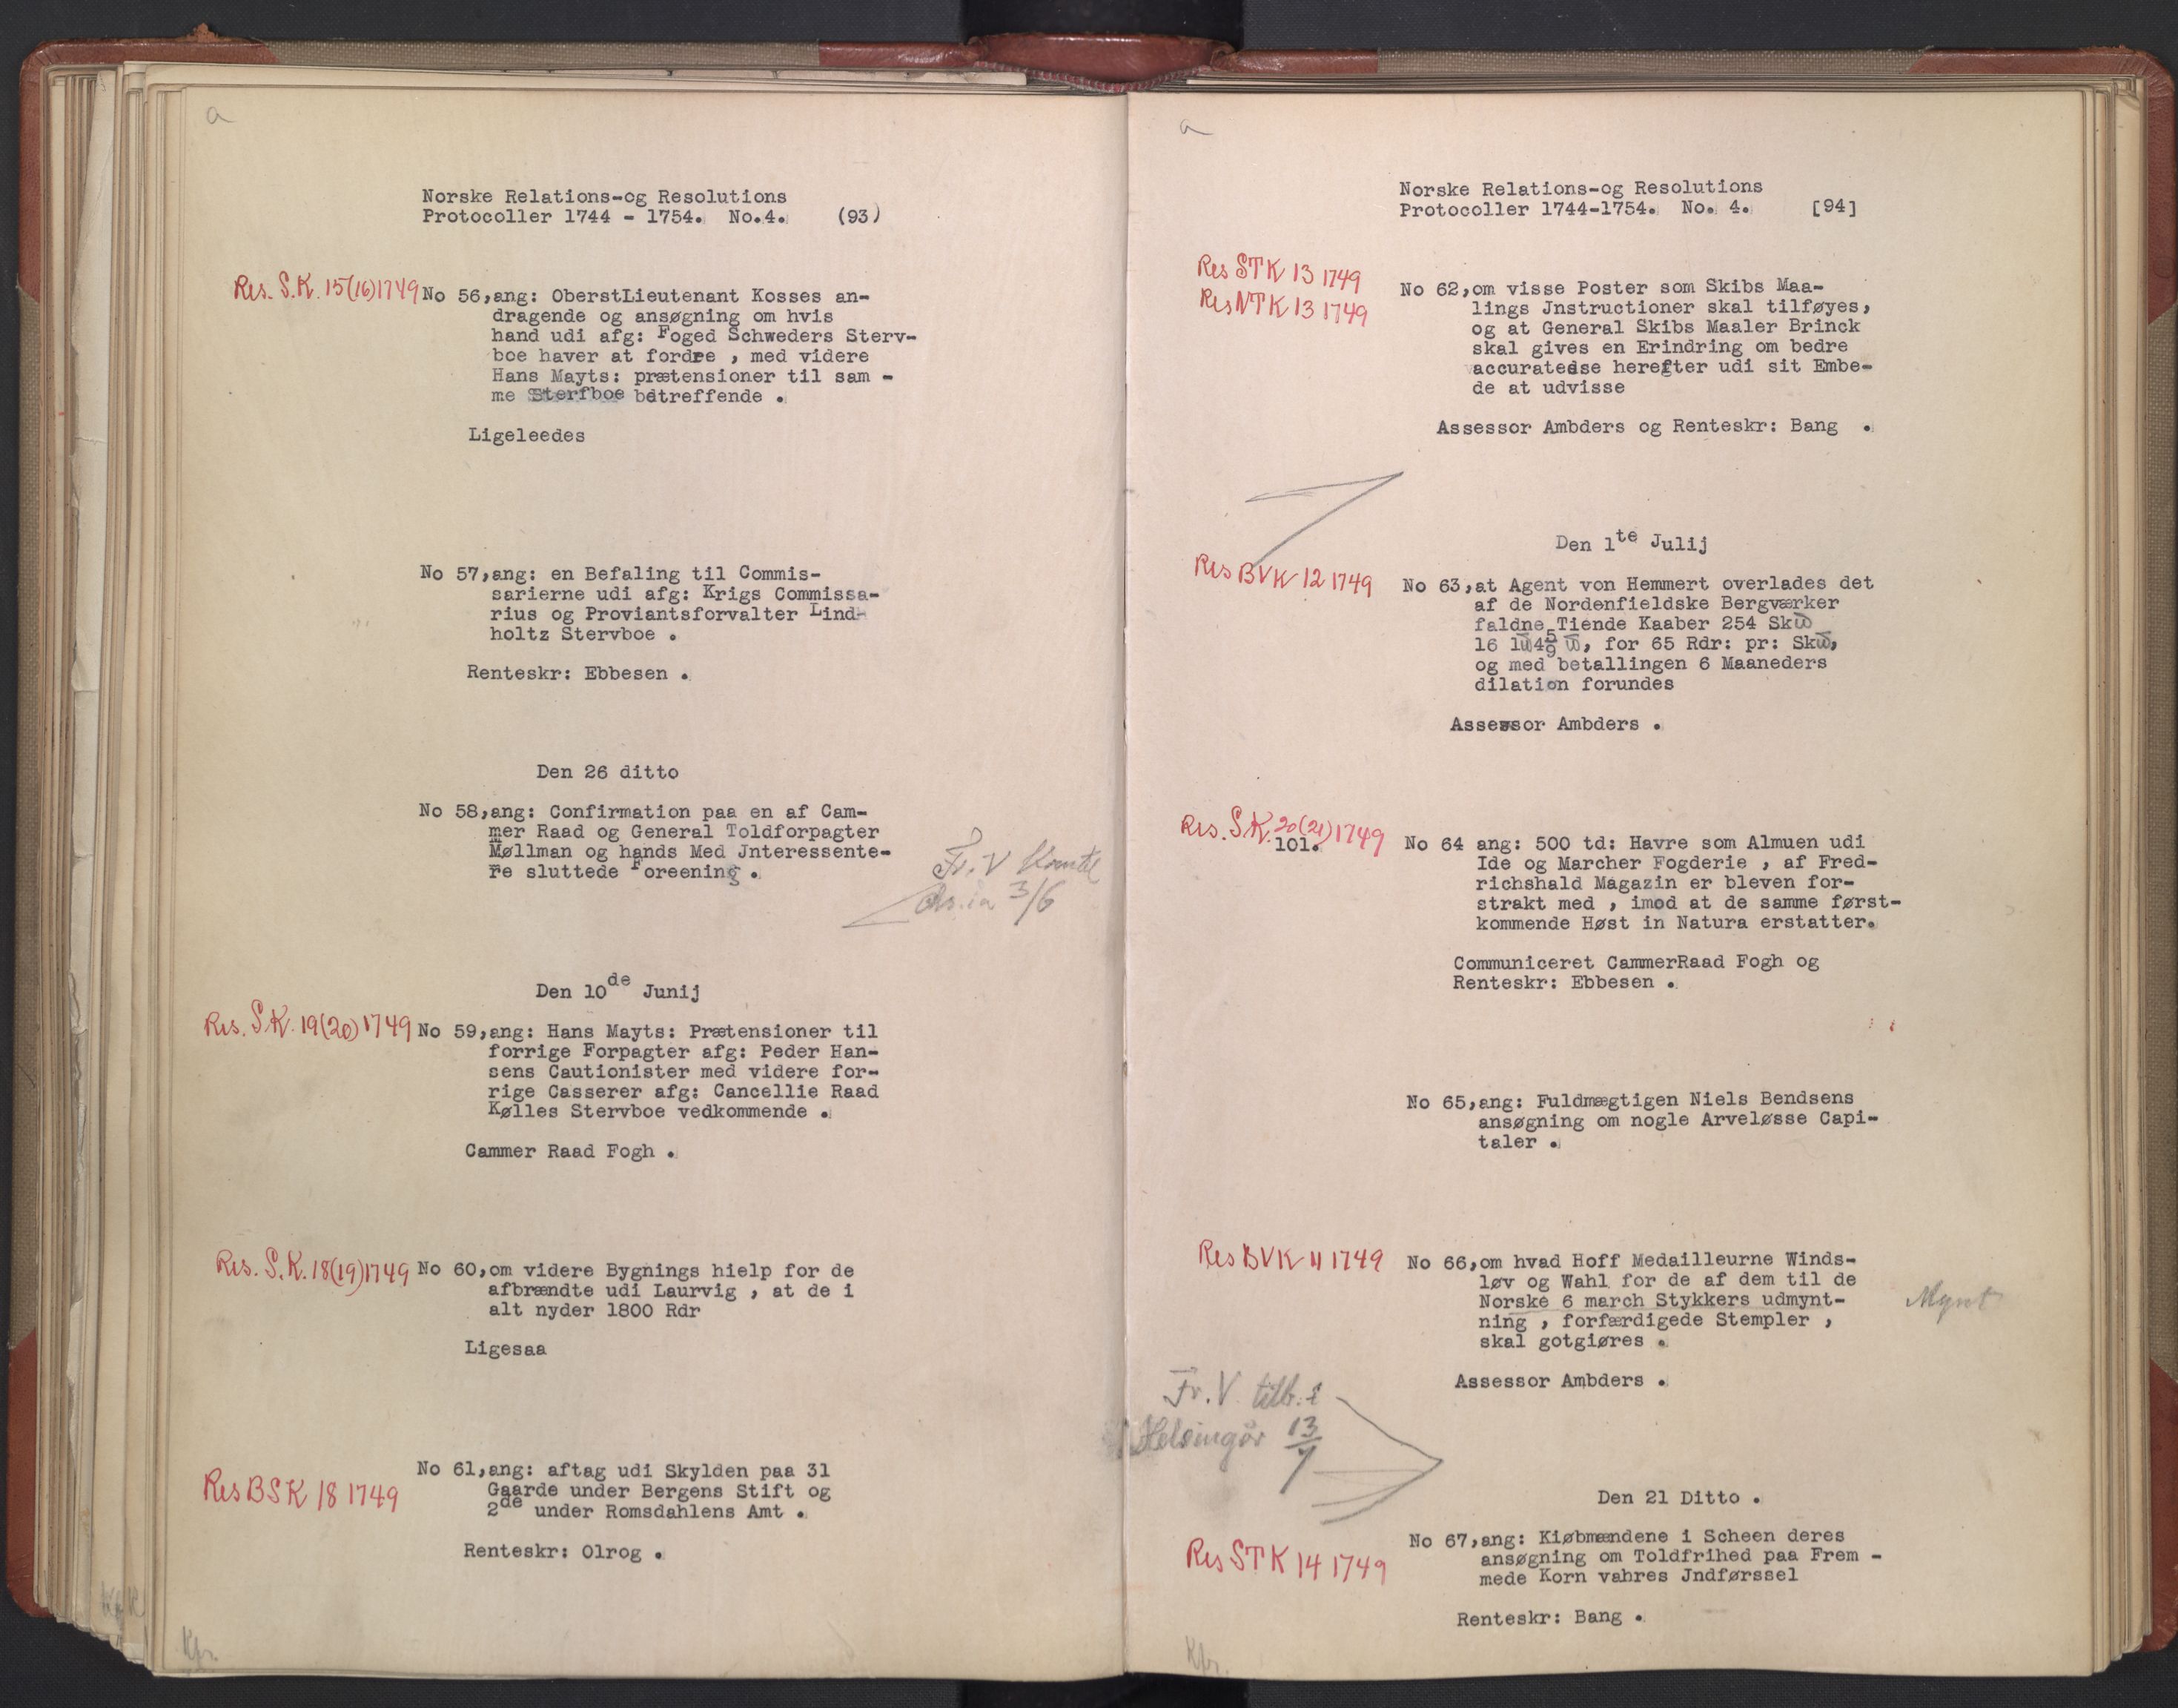 a
Norske Relations-og Resolutions
Protocoller 1744 - 1754. No.4. (93)
Res. S.K. 15(16)1749
No 56,ang: OberstLieutenant Kosses an-
dragende og ansøgning om hvis
hand udi afg: Foged Schweders Sterv-
boe haver at fordre , med videre
Hans Mayts: prætensioner til sam -
me Sterfboe betreffende .
Ligeleedes
No 57,ang: en Befaling til Commis-
sarierne udi afg: Krigs Commissa-
rius og Proviantsforvalter Lind-
holtz Stervboe .
Renteskr: Ebbesen .
Den 26 ditto
No 58,ang: Confirmation paa en af Cam-
mer Raad og General Toldforpagter
Møllman og hands Med Jnteressente-
re sluttede Foreening .
Fr. V
3/6
Den 10de Junij
Res. S.K. 19(20)1749
No 59,ang: Hans Mayts: Prætensioner til
forrige Forpagter afg: Peder Han-
sens Cautionister med videre for-
rige Casserer afg: Cancellie Raad
Kølles Stervboe vedkommende .
Cammer Raad Fogh .
Res. S.K. 18(19)1749
No 60,om videre Bygnings hielp for de
afbrændte udi Laurvig , at de i
alt nyder 1800 Rdr
Ligesaa
Res BSK 18 1749
No 61,ang: aftag udi Skylden paa 31
Gaarde under Bergens Stift og
2de under Romsdahlens Amt .
Renteskr: Olrog .
Kpr.
a
Norske Relations-og Resolutions
Protocoller 1744-1754. No. 4. [94]
Res STK 13 1749
Res NTK 13 1749
No 62,om visse Poster som Skibs Maa-
lings Jnstructioner skal tilføyes,
og at General Skibs Maaler Brinck
skal gives en Erindring om bedre
accuratesse herefter udi sit Embe-
de at udvisse
Assessor Ambders og Renteskr: Bang .
Den 1te Julij
Res BVK 12 1749
No 63,at Agent von Hemmert overlades det
af de Nordenfieldske Bergværker
faldne Tiende Kaaber 254 Sk
16 4 5/9 , for 65 Rdr: pr: Sk ,
og med betallingen 6 Maaneders
dilation forundes
Assessor Ambders .
Res. S.K. 20(21)1749
101.
No 64 ang: 500 td: Havre som Almuen udi
Ide og Marcher Fogderie , af Fred-
richshald Magazin er bleven for-
strakt med , imod at de samme først-
kommende Høst in Natura erstatter.
Communiceret CammerRaad Fogh og
Renteskr: Ebbesen .
No 65,ang: Fuldmægtigen Niels Bendsens
ansøgning om nogle Arveløsse Capi-
taler .
Res BVK 11 1749
No 66,om hvad Hoff Medailleurne Winds-
løv og Wahl for de af dem til de
Norske 6 march Stykkers udmynt-
ning , forfærdigede Stempler ,
skal gotgiøres .
Mynt
Assessor Ambders .
Fr. V tilb. i
Helsingør 13/7
Den 21 Ditto .
Res STK 14 1749
No 67,ang: Kiøbmændene i Scheen deres
ansøgning om Toldfrihed paa Frem -
mede Korn vahres Jndførssel
Renteskr: Bang .
Kpr.